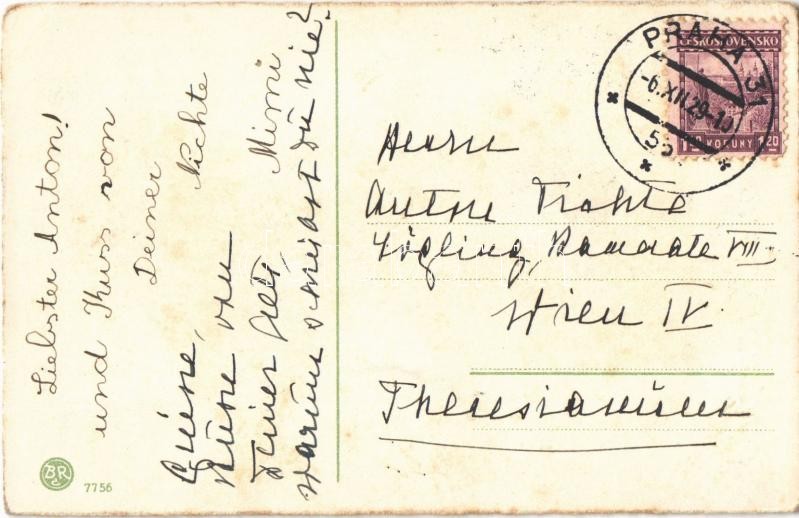 Liebster Anton!
und Kuss von
Deiner Nichte
Mimi
Grüsse,
Küsse von
Deiner
warum schreibst Du nie?
BR
7756
PRAHA 31
-6.XII.29-10
ČESKOSLOVENSKO
1.20 KORUNY 1.20
Herrn
Anton
Zögling, Kamerate VIII
Wien IV
Theresianum